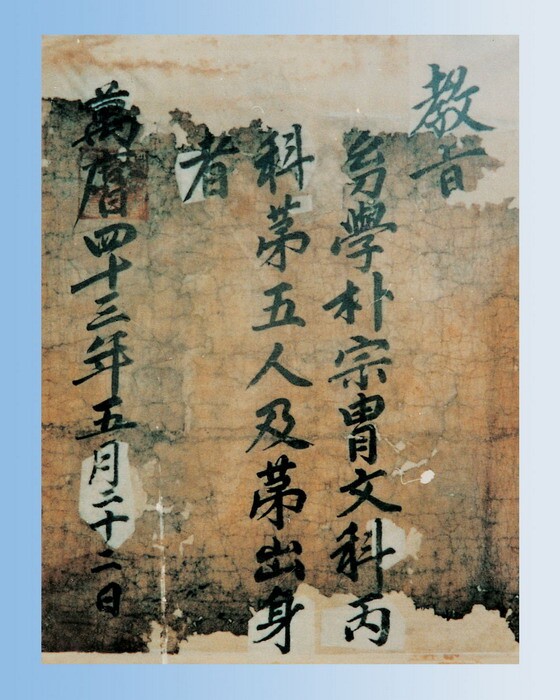 教旨
幼學朴宗胄文科丙
科苐五人及苐出身
者
萬曆四十三年五月二十二日